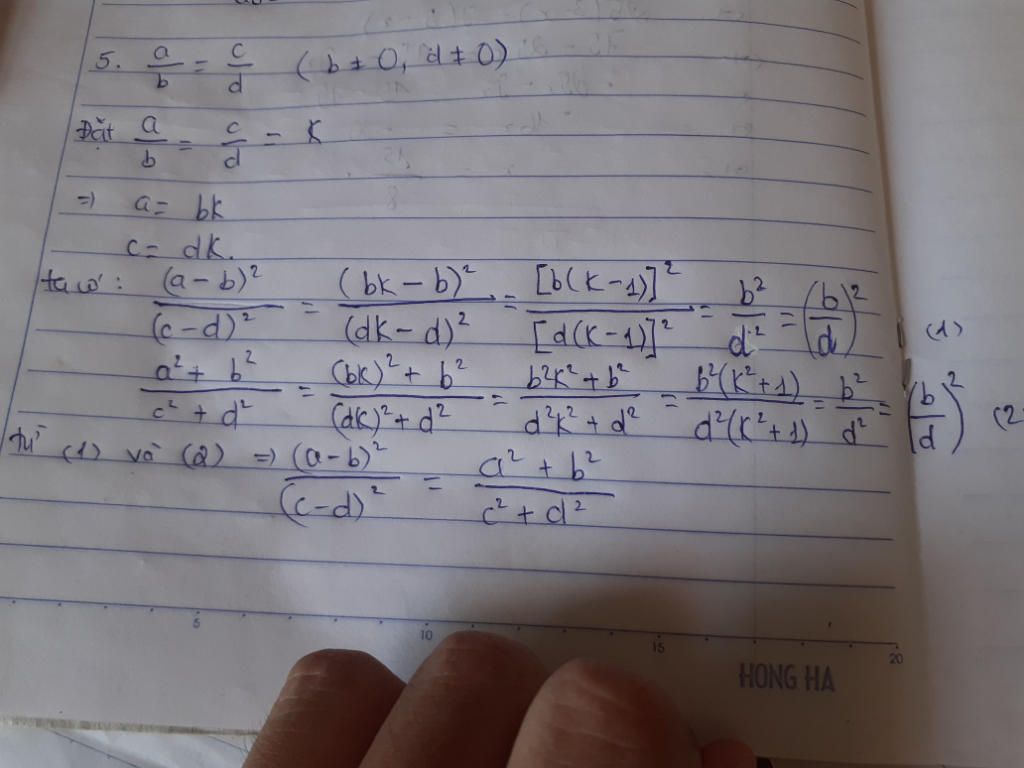 5. a/b = c/d ( b ≠ 0, d ≠ 0)
Đặt a/b = c/d = K
=) a = bK
c = dK.
ta có : (a-b)²/(c-d)² = (bk-b)²/(dk-d)² = [b(K-1)]²/[d(K-1)]² = b²/d² = (b/d)² (1)
a² + b²/c² + d² = (bk)² + b²/(dk)² + d² = b²K² + b²/d²K² + d² = b²(K²+1)/d²(K²+1) = b²/d² = (b/d)² (2
từ (1) và (2) =) (a-b)²/(c-d)² = a² + b²/c² + d²
5 10 15 20
HONG HA